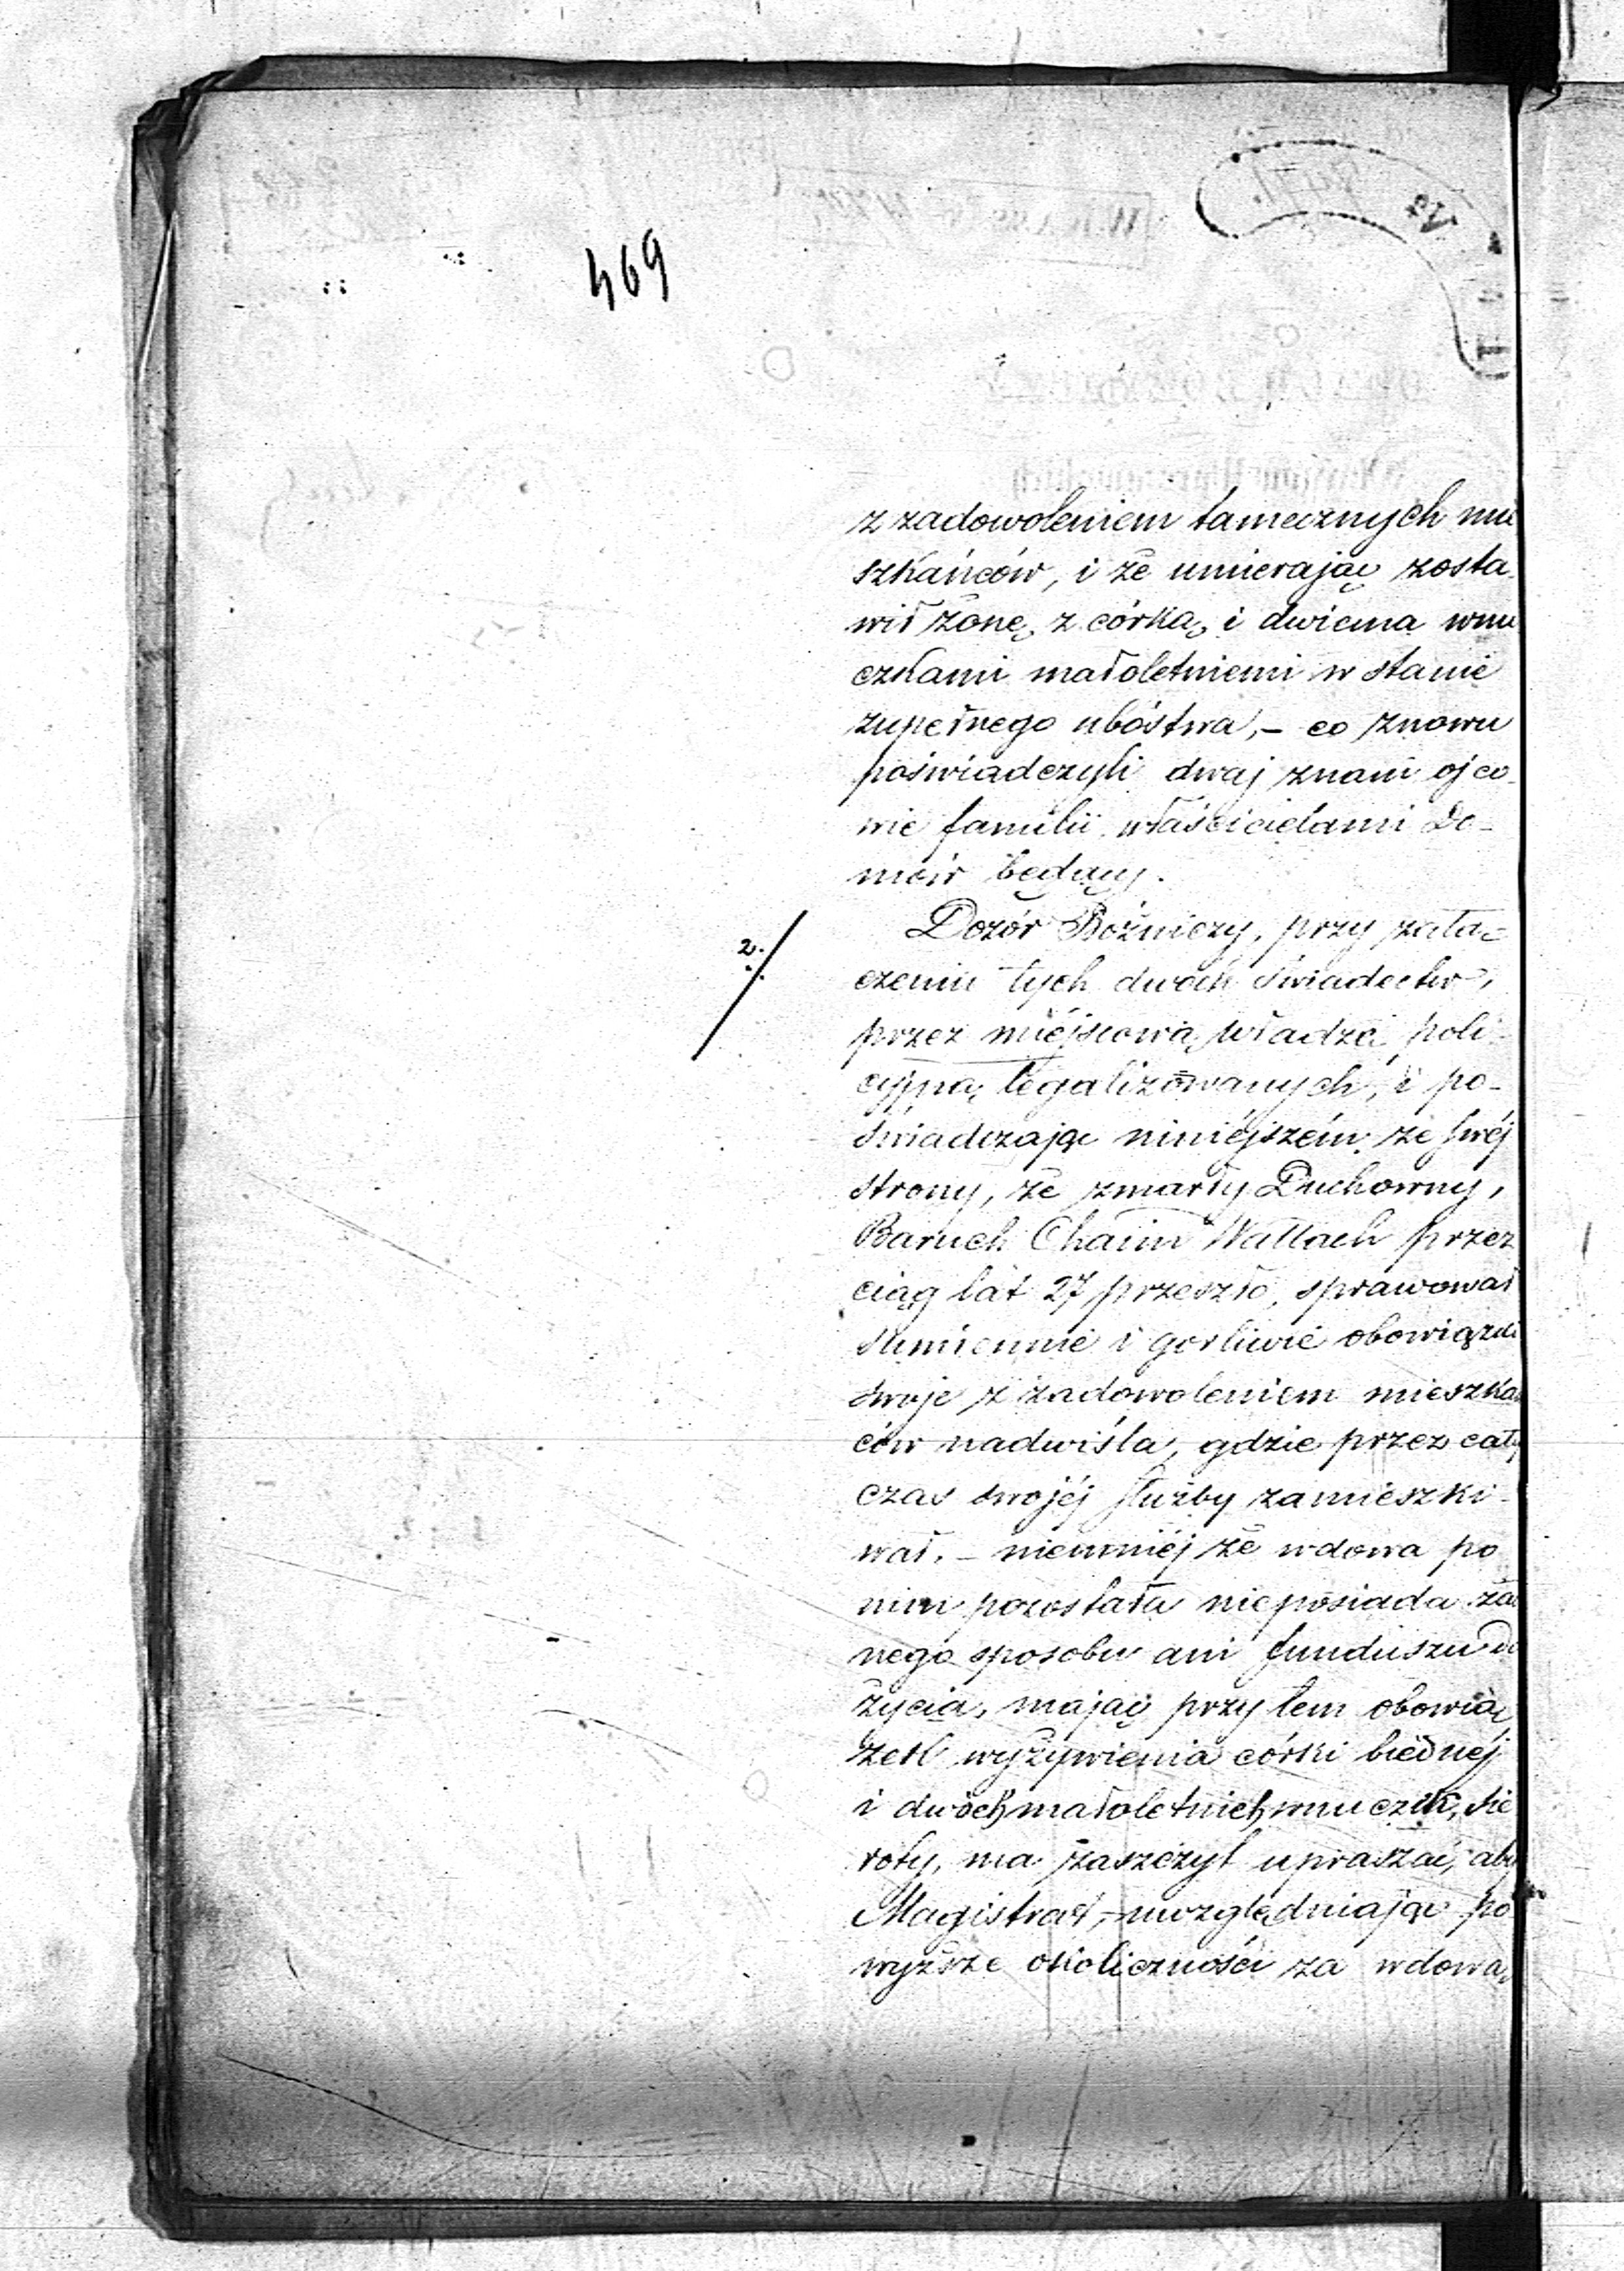 469
z zadowoleniem tamecznych mie
szkańców, i że umierając zosta-
wił żonę, z córką, i dwiema wnu
czkami małoletniemi w stanie
zupełnego ubóstwa, – co znowu
poświadczyli dwaj znani ojco-
wie familii właścicielami do-
mów będący.
2.
Dozór Bożniczy, przy załą-
czeniu tych dwóch świadectw,
przez miejscową władzę poli-
cyjną legalizowanych, i po-
świadczając niniéjszém, ze swéj
strony, że zmarły Duchowny,
Baruch Chaim Wallach przez
ciąg lat 27 przeszło, sprawował
sumiennie i gorliwie obowiązki
swoje z zadowoleniem mieszkań
ców nadwiśla, gdzie przez cały
czas swojéj służby zamieszki-
wał, – niemniéj że wdowa po
nim pozostała nieposiada żad
nego sposobu ani funduszu do
życia, mając przytem obowią
zek wyżywienia córki biednéj
i dwóch małoletnich wnuczek, sie
roty, ma zaszczyt upraszać, aby
Magistrat, – uwzględniając po
wyższe okoliczności za wdową,